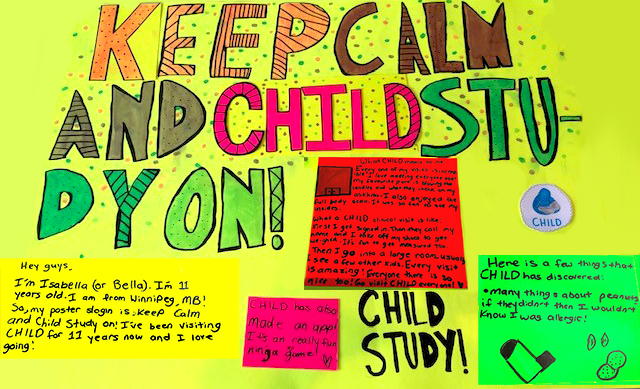 KEEP CALM
AND CHILD STU-
DY ON!
What CHILD means to me
Every one of my visits is incredible
I love meeting everyone and
my favourite part is blowing the
candles out when they check on my
asthma. I also enjoyed the
full body scan. It was so fun to see my
insides.
What a CHILD clinical visit is like:
First I get signed in. Then they call my
name and I take off my shoes to get
weighed. It's fun to get measured too.
Then I go into a large room. Usually
I see a few other kids. Every visit
is amazing! Everyone there is so
nice too! Go visit CHILD everyone!
CHILD
Hey guys,
I'm Isabella (or Bella). I'm 11
years old. I am from Winnipeg, MB!
So, my poster slogan is: Keep Calm
and Child Study on! I've been visiting
CHILD for 11 years now and I love
going!
CHILD has also
made an app!
It's an really fun
ninga game!
CHILD
STUDY!
Here is a few things that
CHILD has discovered:
• Many things about peanuts
if they didn't then I wouldn't
Know I was allergic!